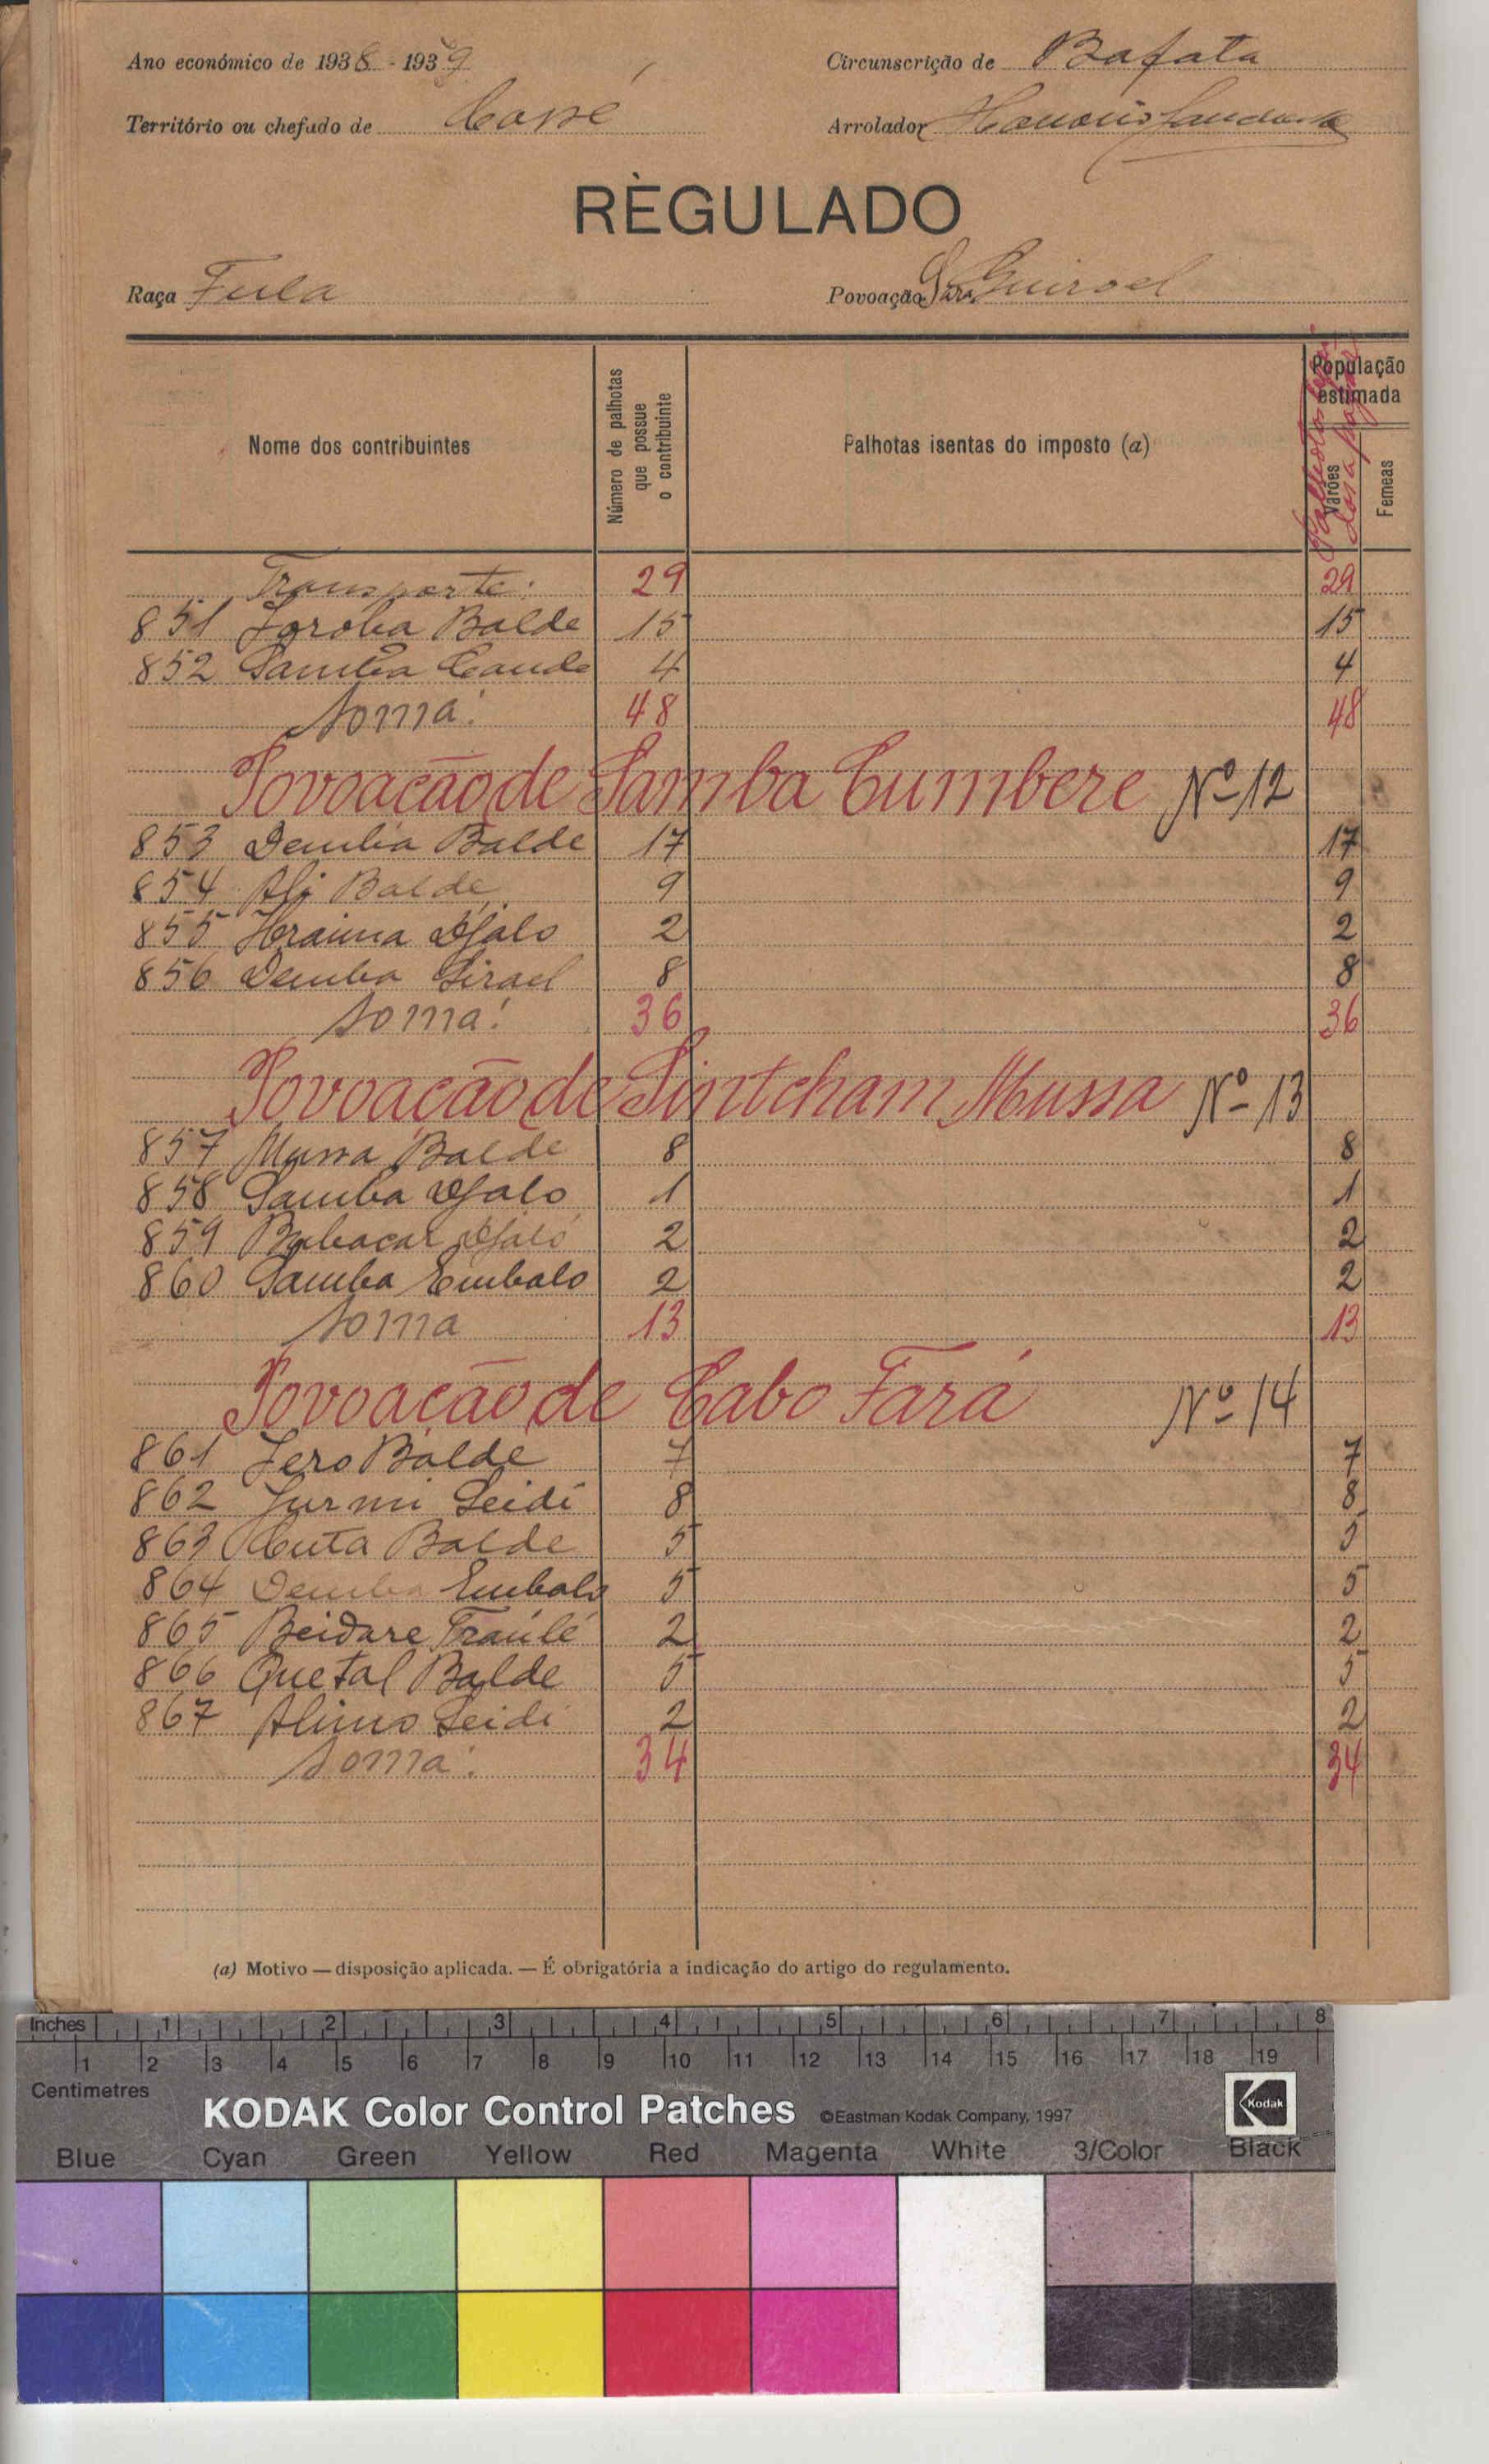 Ano económico de 1938 - 1939
Circunscrição de Bafata
Território ou chefado de Cossé
Arrolador Honorio
RÈGULADO
Raça Fula
Povoação Sare Guiroel
Nome dos contribuintes
Número de palhotas que possue o contribuinte
Palhotas isentas do imposto (a)
População estimada
Varões
Femeas
Transporte: 29 29
851 Joroba Balde 15 15
852 Samba Cande 4 4
Soma: 48 48
Povoação de Samba Cumbere Nº 12
853 Demba Balde 17 17
854 Ali Balde 9 9
855 Ibraima Djalo 2 2
856 Demba Sirael 8 8
Soma: 36 36
Povoação de Sintcham Mussa Nº 13
857 Mussa Balde 8 8
858 Samba Djalo 1 1
859 Bubacar Djaló 2 2
860 Samba Embalo 2 2
Soma 13 13
Povoação de Cabo Fará Nº 14
861 Jero Balde 7 7
862 Jurmi Seidi 8 8
863 Cuta Balde 5 5
864 Demba Embalo 5 5
865 Beidare Traúlé 2 2
866 Quetal Balde 5 5
867 Alimo Seidi 2 2
Soma: 34 34
(a) Motivo — disposição aplicada. — É obrigatória a indicação do artigo do regulamento.
Inches 1 2 3 4 5 6 7 8
1 2 3 4 5 6 7 8 9 10 11 12 13 14 15 16 17 18 19
Centimetres
KODAK Color Control Patches ©Eastman Kodak Company, 1997 Kodak
Blue Cyan Green Yellow Red Magenta White 3/Color Black